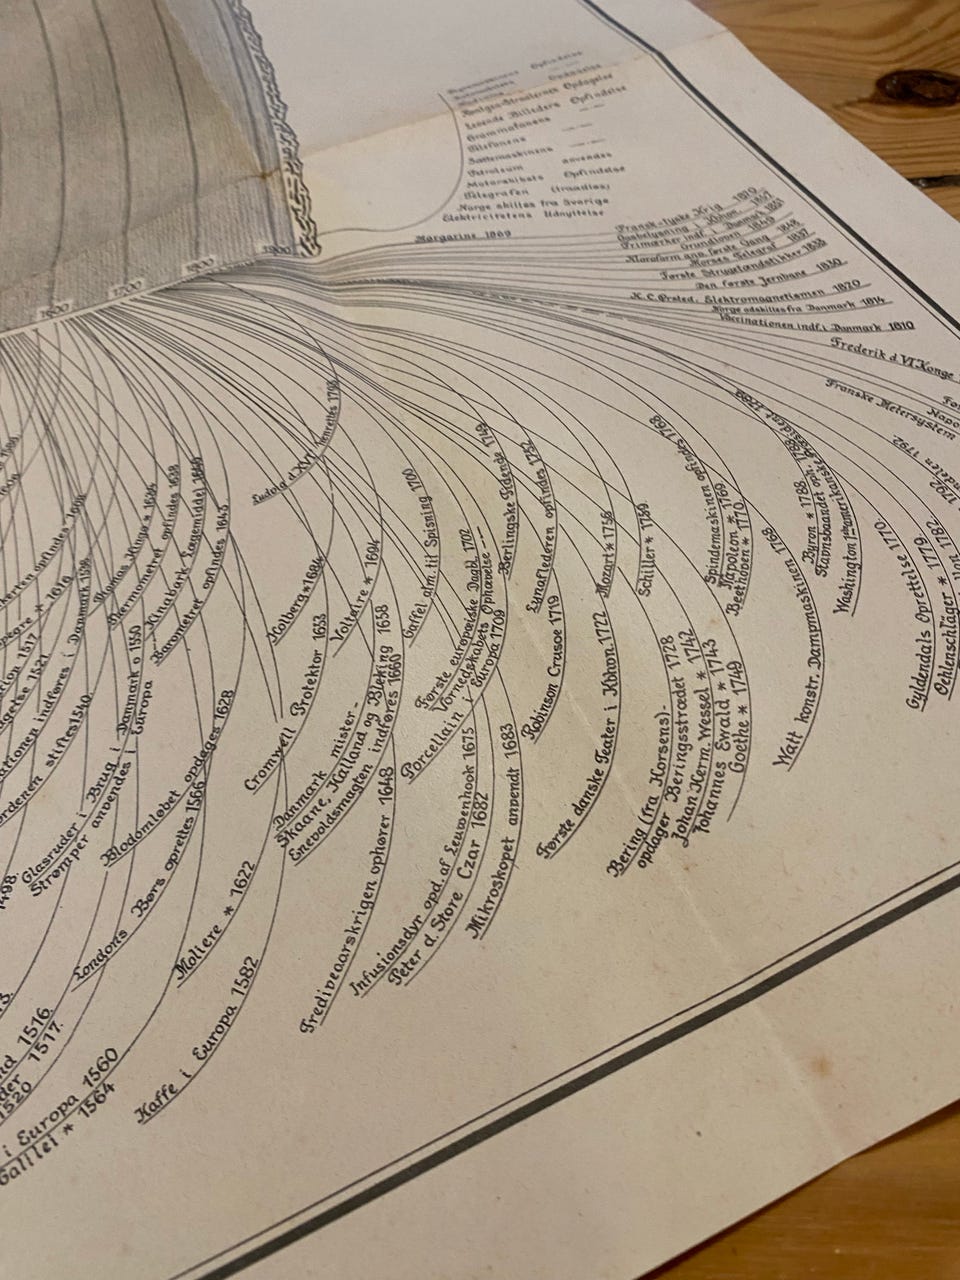 Opfindelse
Røntgen-Straalernes Opdagelse
Levende Billeders Opfindelse
Grammofonens —„—
Telefonens
Sættemaskinens —„—
Petroleum anvendes
Motorskibets Opfindelse
Telegrafen (traadløs)
Norge skilles fra Sverige
Elektricitetens Udnyttelse
Margarine 1869
Fransk-tyske Krig 1870
Gasbelysning i Kbhvn. 1857
Frimærker indf. i Danmark 1851
Grundloven 1849
Kloroform anv. første Gang 1848
Morses Telegraf 1837
Første Strygetændstikker 1833
Den første Jernbane 1830
H.C. Ørsted, Elektromagnetismen 1820
Norge adskilles fra Danmark 1814
Vaccinationen indf. i Danmark 1810
Frederik d VI Konge
Franske Metersystem
1900
1900
1700
1600
Ludvig d XVI henrettes 1793
Washington 1ste amerikanske Præsident 1789
Stavnsbaandet oph. 1788
Byron * 1788
Watt konstr. Dampmaskinen 1768
Gyldendals Oprettelse 1770
Oehlenschläger * 1779
1782
1792
Spindemaskinen opfindes 1768
Napoleon * 1769
Beethoven * 1770
Schiller * 1759
Mozart * 1756
Lynaflederen opfindes 1752
Berlingske Tidende 1749
Goethe * 1749
Johannes Ewald * 1743
Johan Herm. Wessel * 1742
Bering (fra Horsens)-
opdager Beringsstrædet 1728
Første danske Teater i Kbhvn. 1722
Robinson Crusoe 1719
Porcellain i Europa 1709
Vornedskabets Ophævelse —„—
Første europæiske Dagbl. 1702
Gaffel alm. til Spisning 1700
Voltaire * 1694
Holberg * 1684
Mikroskopet anvendt 1683
Peter d. Store Czar 1682
Infusionsdyr opd. af Leuwenhook 1675
Enevoldsmagten indføres 1660
Danmark mister-
Skaane, Halland og Bleking 1658
Cromwell Protektor 1653
Trediveaarskrigen ophører 1648
Barometret opfindes 1643
Kinabark Lægemiddel 1640
Termometret opfindes 1638
Thomas Kingo * 1634
Blodomløbet opdages 1628
Moliere * 1622
Kaffe i Europa 1582
Londons Børs oprettes 1566
Galilei * 1564
i Europa 1560
Strømper anvendes i Europa
Glasruder i Brug i Danmark o 1550
stiftes 1540.
indføres i Danmark 1536
1521
1517
* 1616
1520
1517.
1516.
1498.